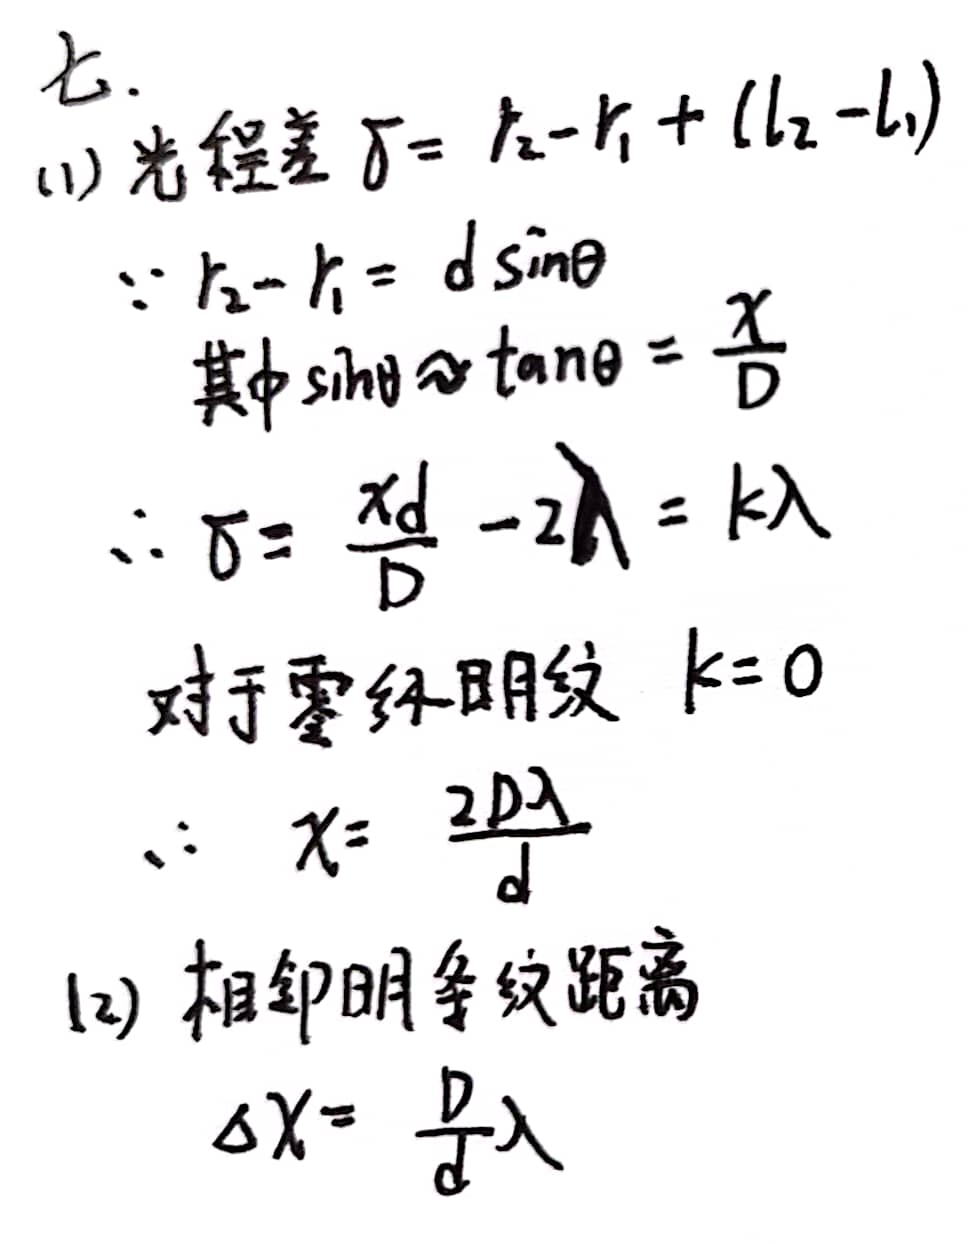 七.
(1) 光程差 δ = r₂ - r₁ + (l₂ - l₁)
∵ r₂ - r₁ = d sinθ
其中 sinθ ≈ tanθ = x/D
∴ δ = xd/D - 2λ = kλ
对于零级明纹 k = 0
∴ x = 2Dλ/d
(2) 相邻明条纹距离
Δx = D/d λ